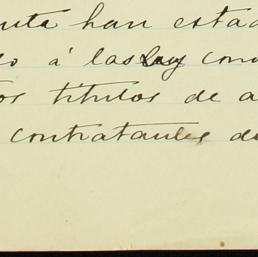 nuta han estad
o á las Ley con
os titulos de a
contratantes de